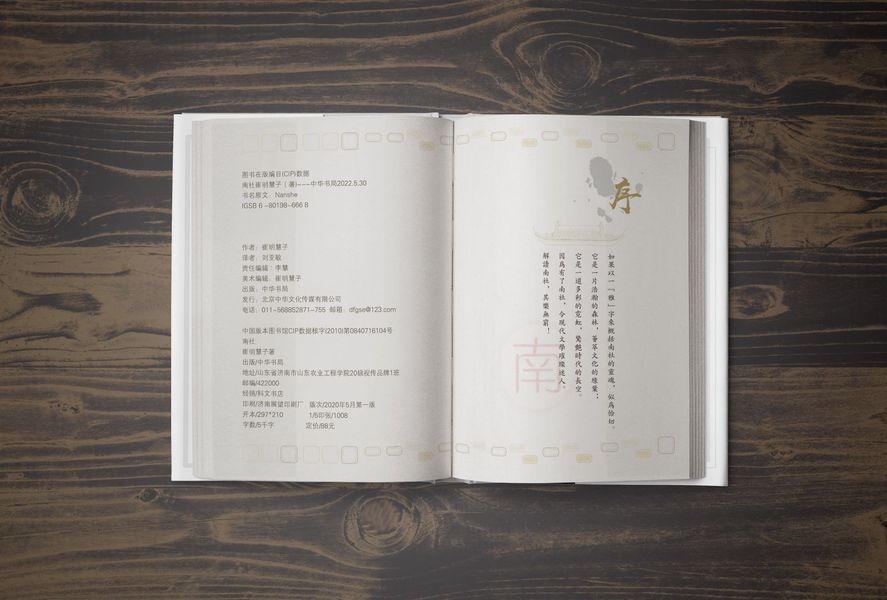 图书在版编目(CIP)数据
南社崔明慧子（著)---中华书局2022.5.30
书名原文：Nanshe
IGSB 6-80198-666 8
作者：崔明慧子
译者：刘亚敏
责任编辑：李慧
美术编辑：崔明慧子
出版：中华书局
发行：北京中华文化传媒有限公司
电话：011-568852871-755 邮箱：dfgse@123.com
中国版本图书馆CIP数据核字(2010)第0840716104号
南社
崔明慧子著
出版/中华书局
地址/山东省济南市山东农业工程学院20级视传品牌1班
邮编/422000
经销/科文书店
印刷/济南展望印刷厂 版次/2020年5月第一版
开本/297*210 1/5印张/1008
字数/5千字 定价/88元
序
如果以一「雅」字来概括南社的靈魂，似爲恰切。
它是一片浩瀚的森林，薈萃文化的臻藥；
它是一道多彩的霓虹，驚艷時代的長空。
因爲有了南社，令現代文學璀璨迷人
解讀南社，其樂無窮！
南